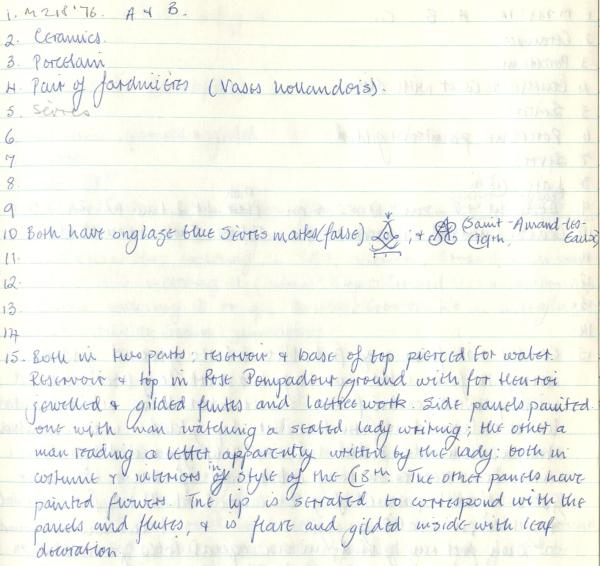 1. M218'76. A & B.
2. Ceramics
3. Porcelain
4. Pair of Jardinières (Vases hollandois).
5. Sèvres
6
7
8
9
10 Both have onglaze blue Sèvres marks (false) ; & (Saint-Amand-les-Eaux)
C19th.
11.
12.
13.
14
15. Both in two parts; reservoir & base of top pierced for water.
Reservoir & top in Rose Pompadour ground with
jewelled & gilded flutes and lattice work. Side panels painted
one with man watching a seated lady writing; the other a
man reading a letter apparently written by the lady; both in
costume & interiors in style of the C18th. The other panels have
painted flowers. The lip is serrated to correspond with the
panels and flutes, & is flare and gilded inside with leaf
decoration